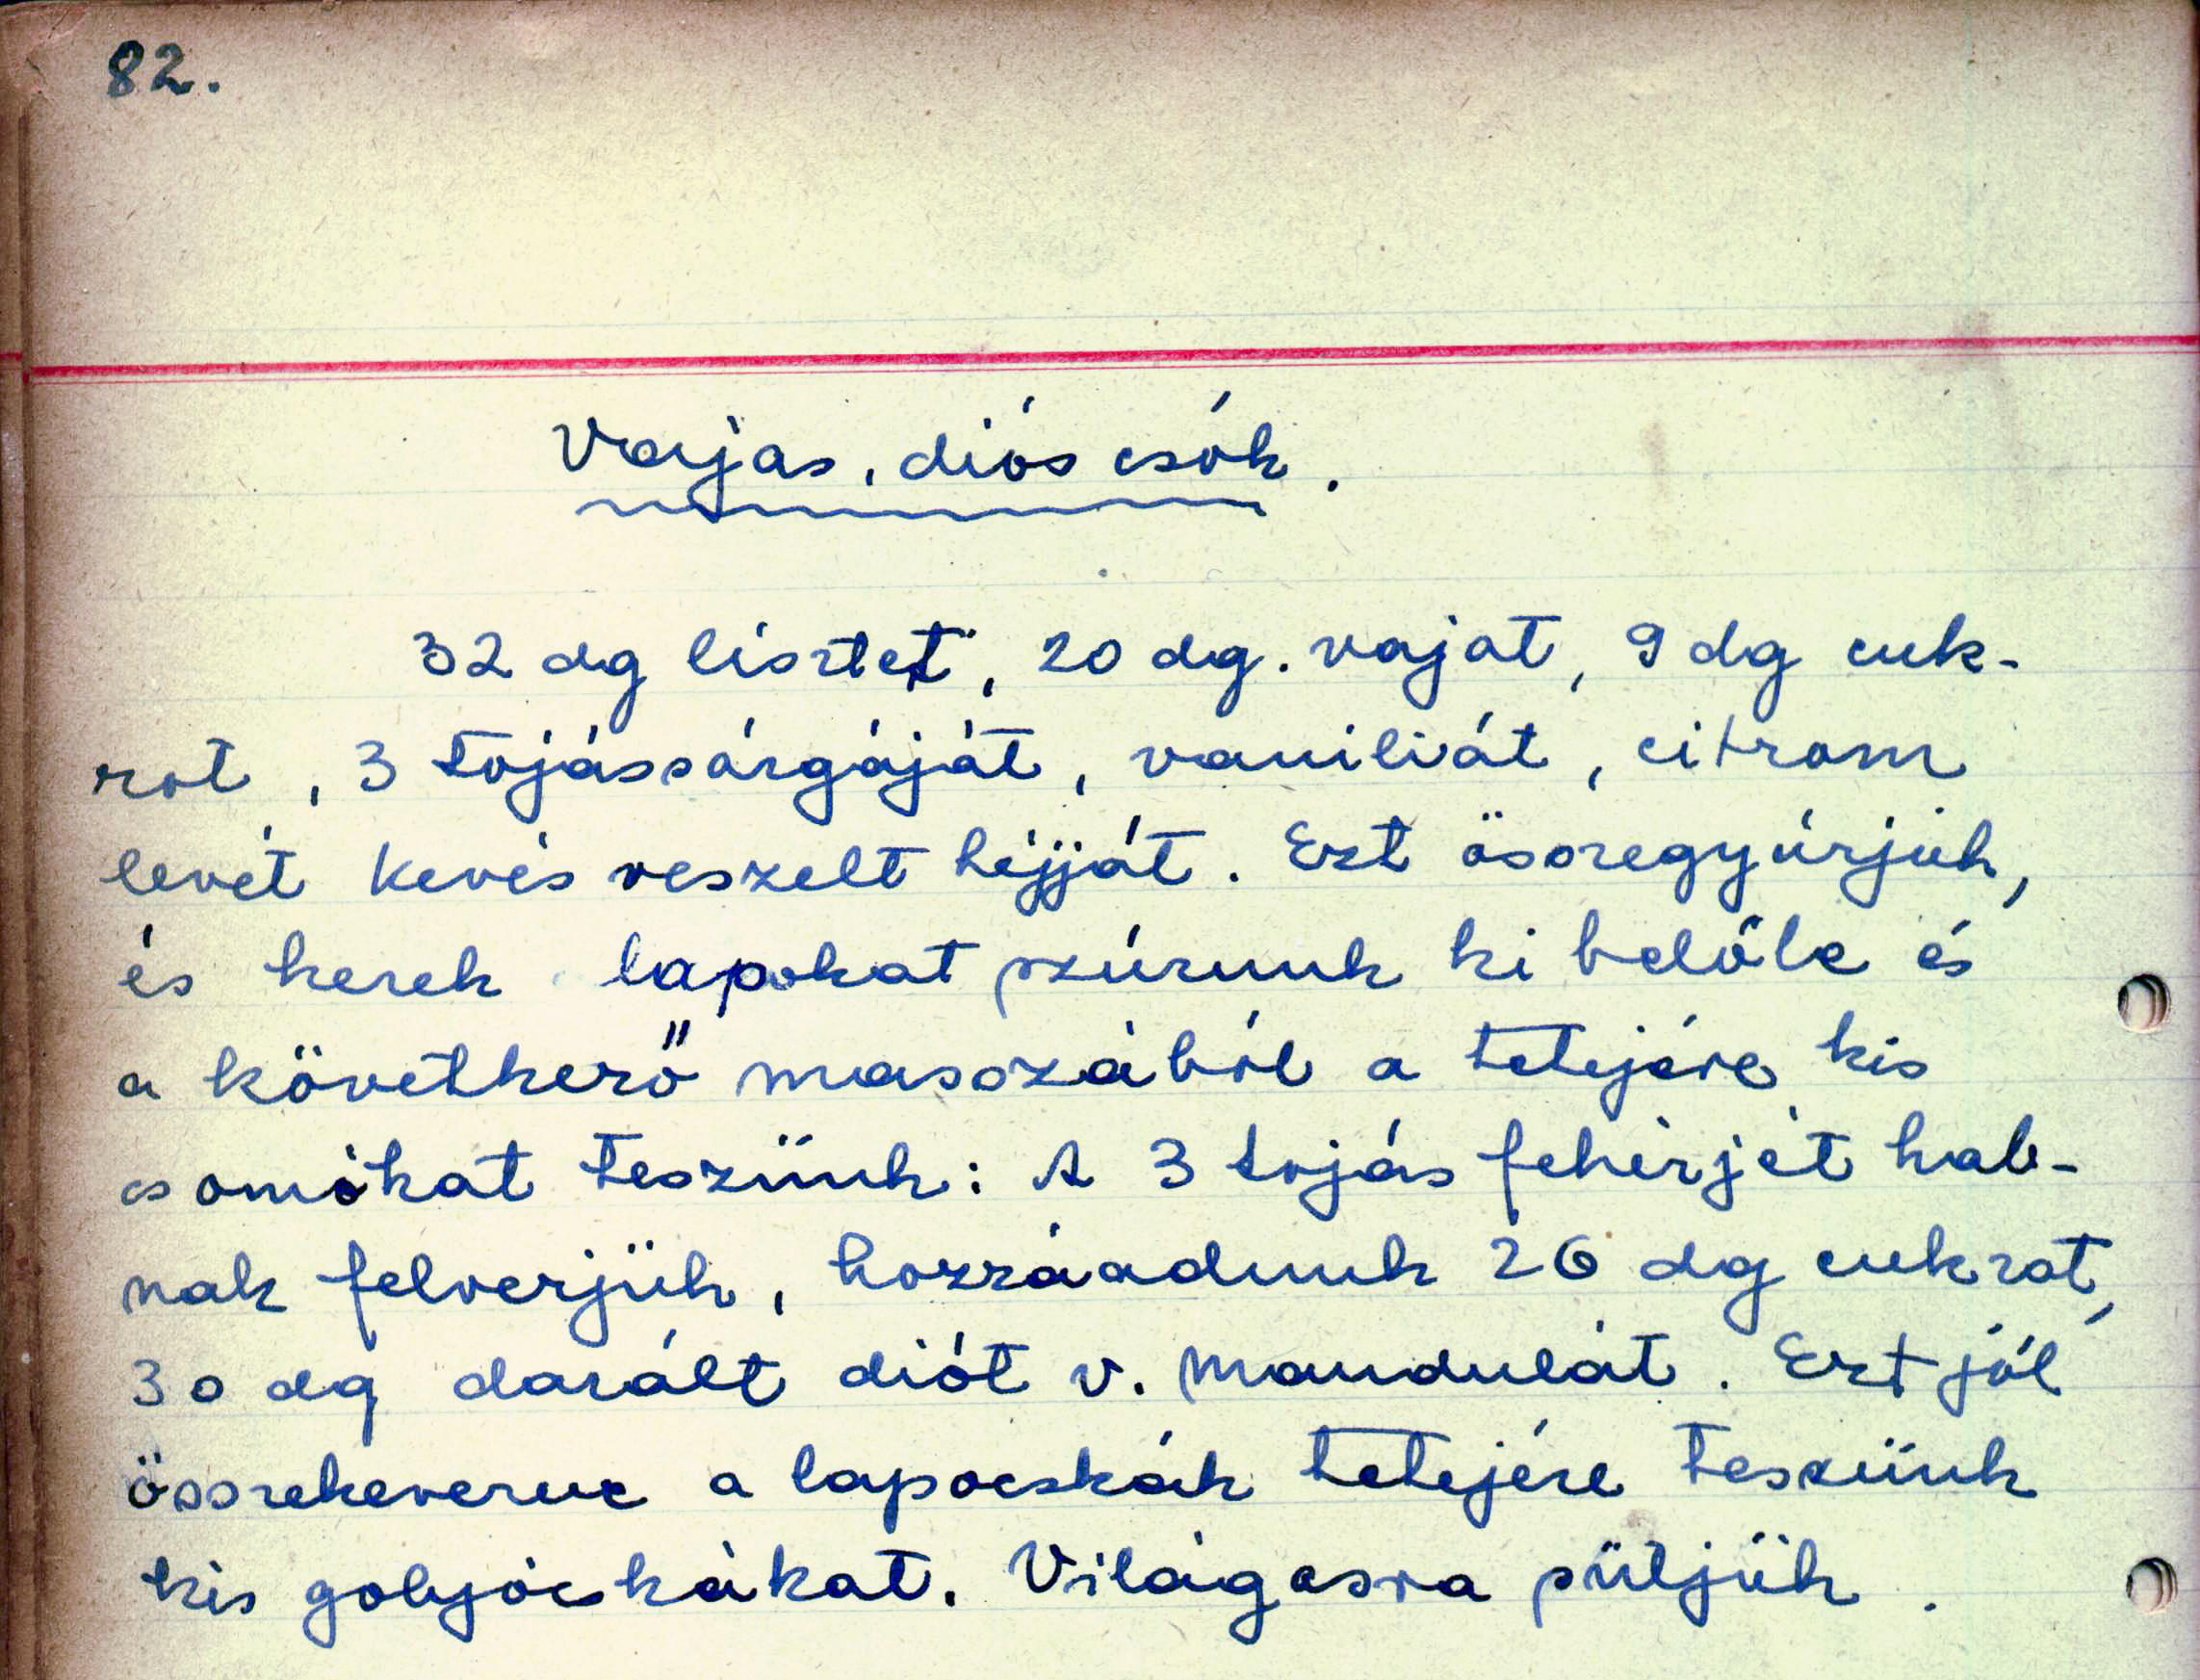 82.
Vajas, diós csók.
32 dg lisztet, 20 dg. vajat, 9 dg cuk-
rot, 3 tojássárgáját, vaniliát, citrom
levét kevés reszelt héjját. Ezt össregyúrjuk,
és kerek lapokat szúrunk ki belőle és
a következő masszából a tetejére kis
csomókat teszünk: A 3 tojás fehérjét hab-
nak felverjük, hozzáadunk 26 dg cukrot,
30 dg darált diót v. mandulát. Ezt jól
összekeverve a lapocskák tetejére teszünk
kis golyócskákat. Világosra sütjük.